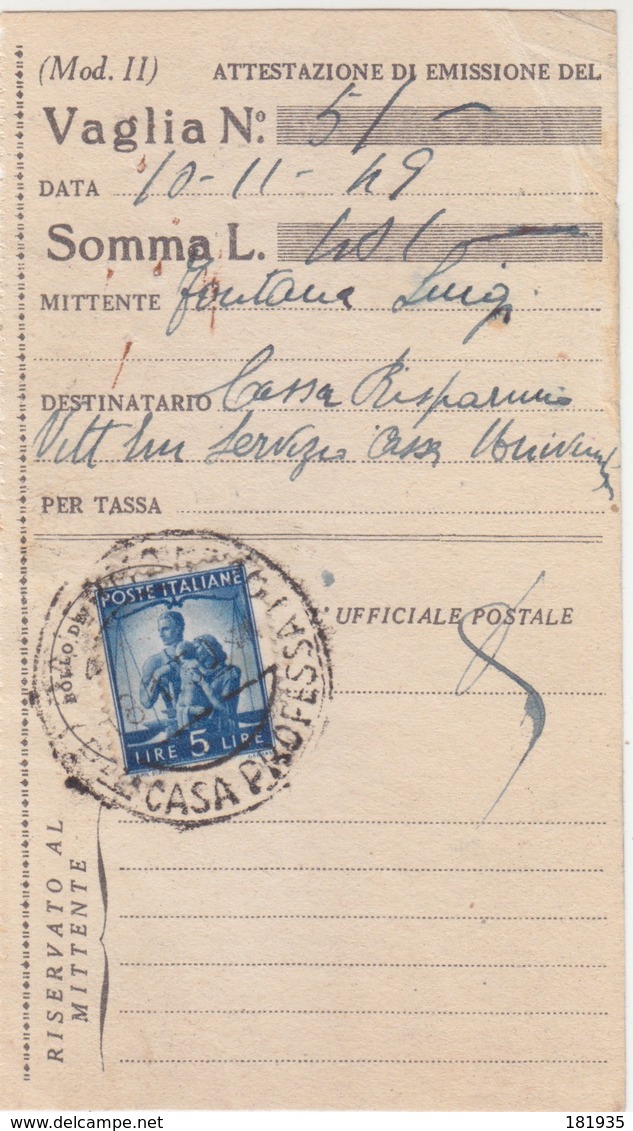 (Mod. II) ATTESTAZIONE DI EMISSIONE DEL
Vaglia N.º 51
DATA 10-11-49
Somma L.
MITTENTE Fontana Luigi
DESTINATARIO Cassa Risparmio
Vitt Em Servizio Cassa
PER TASSA
L'UFFICIALE POSTALE
BOLLO
POSTE ITALIANE
LIRE 5 LIRE
CASA PROFESSA
RISERVATO AL
MITTENTE
181935